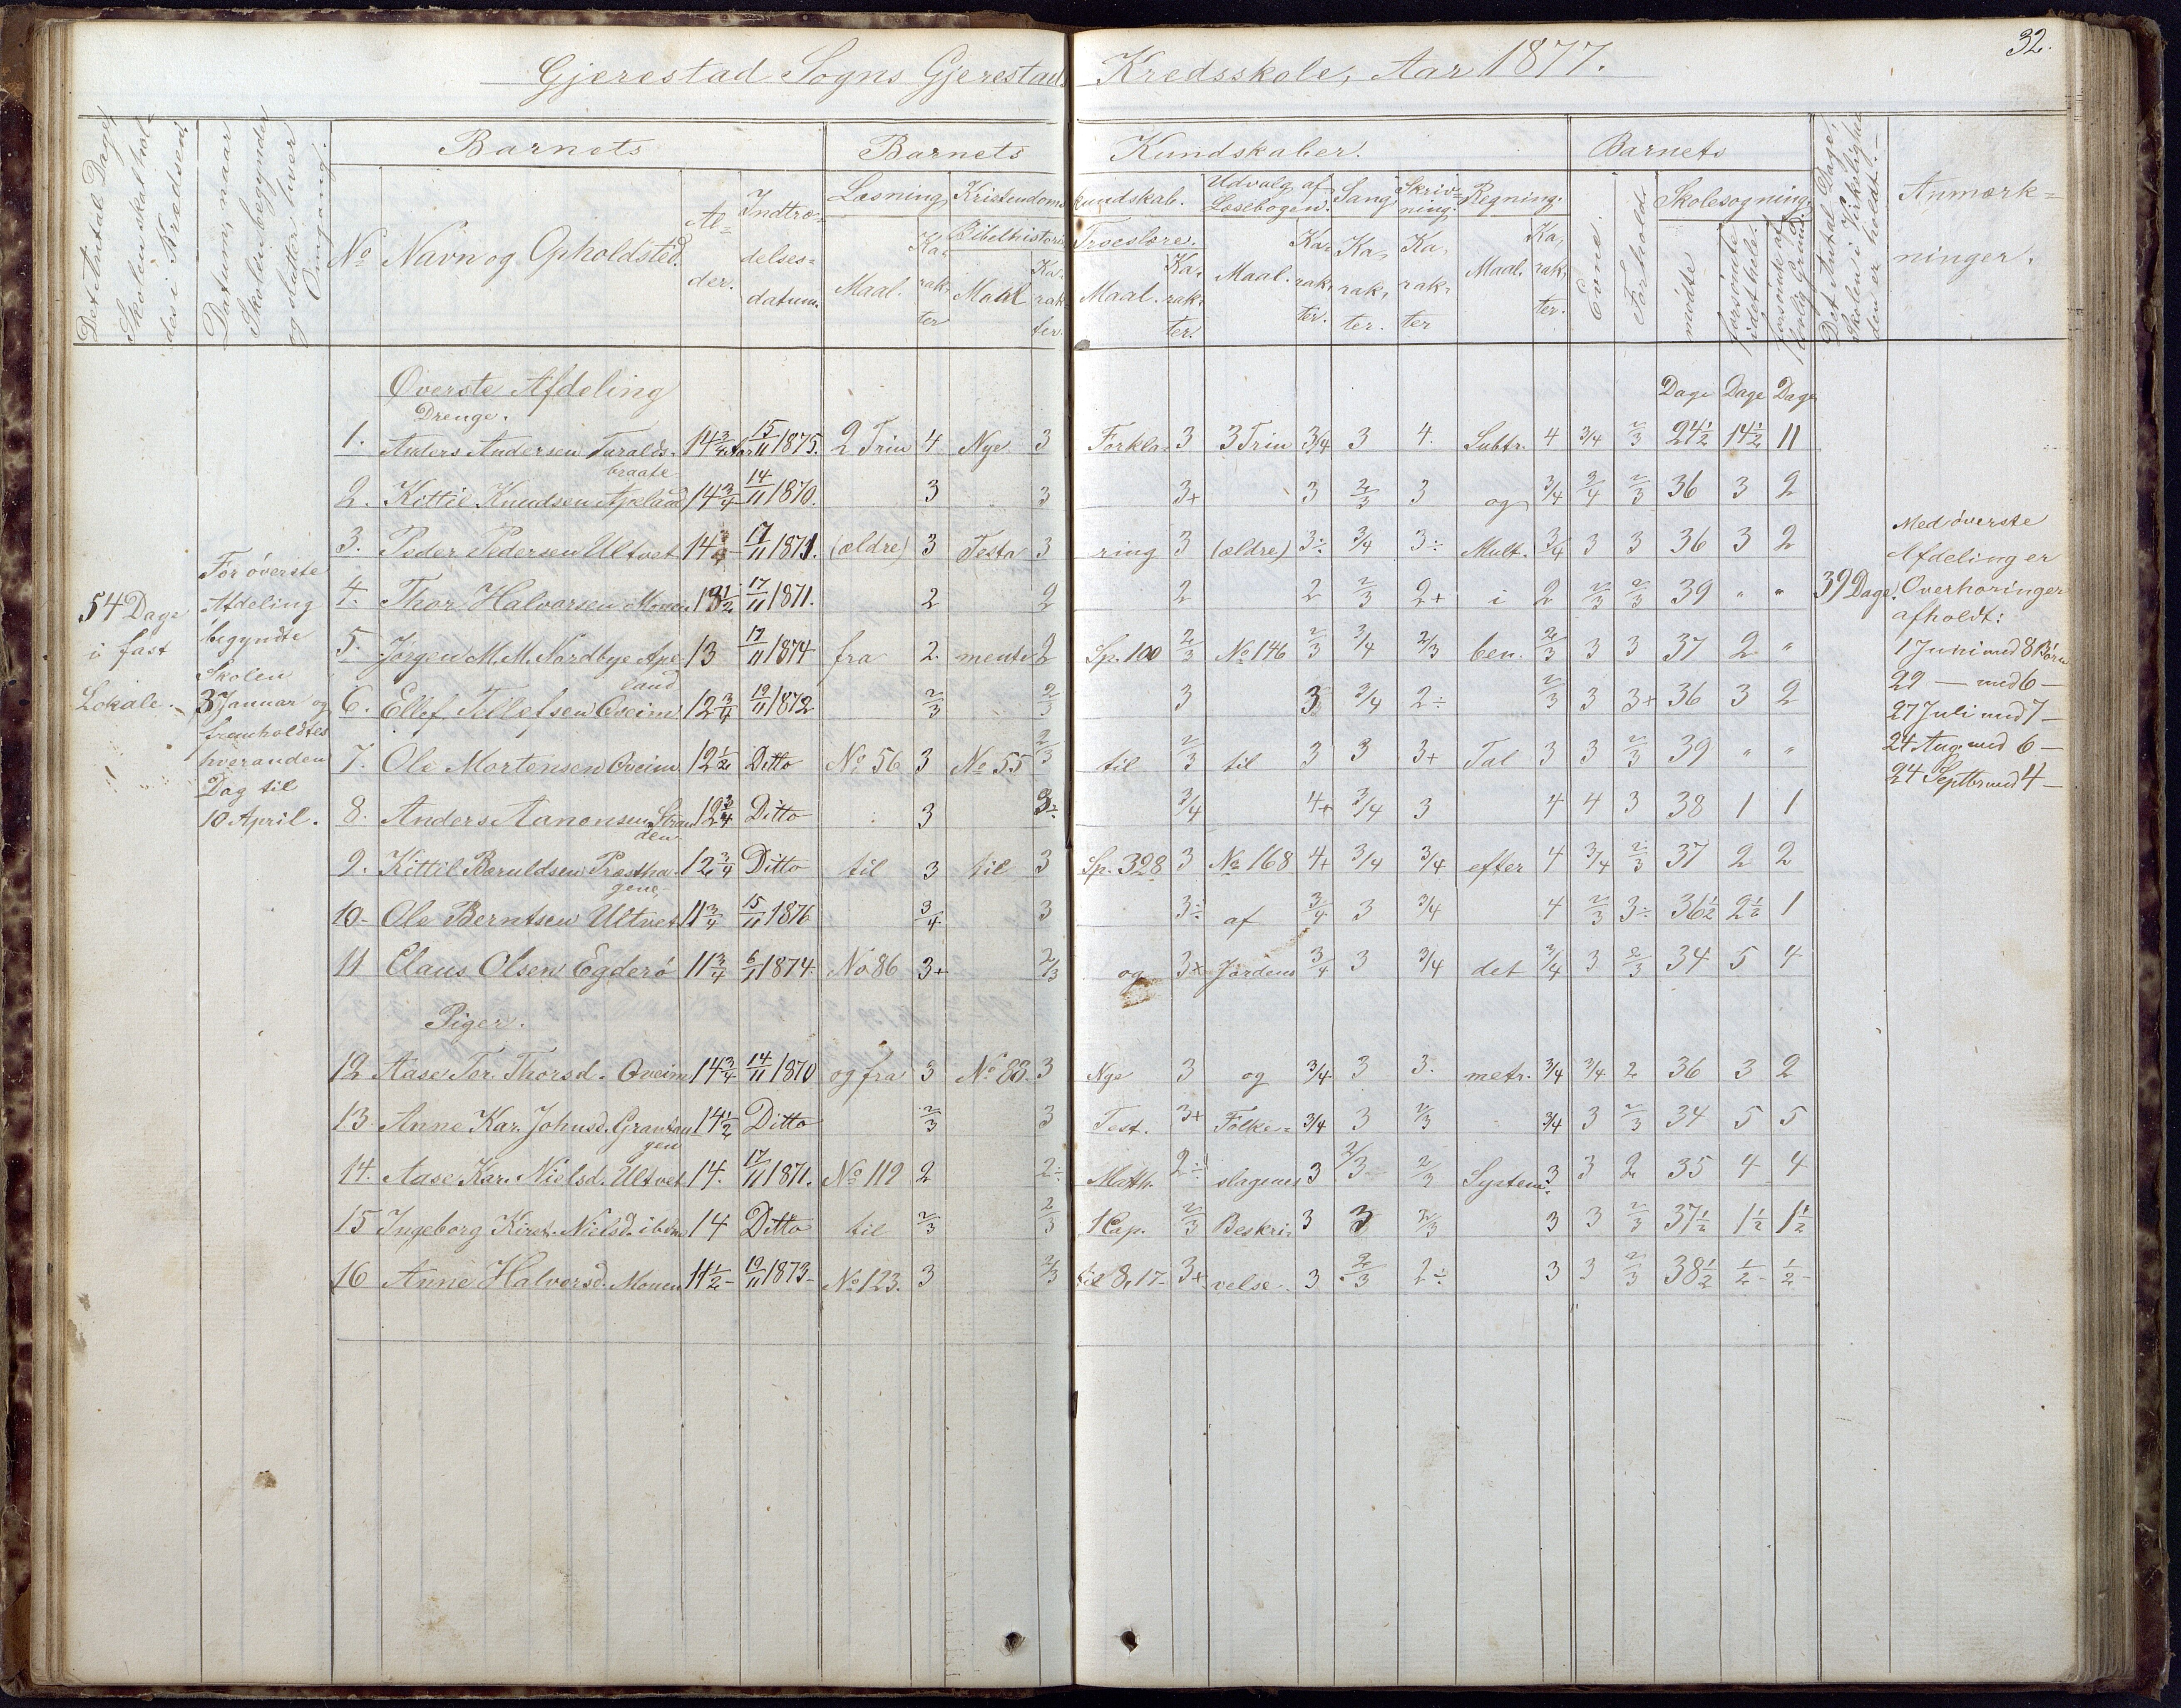 32.
Gjerestad Sogns Gjerestads Kredsskole, Aar 1877.
Det Antal Dage, Skolen skal holdes i Kredsen.
Datum, naar Skolen begynder og slutter hver Omgang.
Barnets
Barnets Kundskaber.
Barnets
Det Antal Dage, Skolen i Virkeligheden er holdt.
Anmærkninger.
No Navn og Opholdsted. Alder. Indtrædelsesdatum.
Læsning, Kristendomskundskab. Udvalg af Læsebogen. Sang Skrivning. Regning.
Bibelhistorie Troeslære.
Maal. Karakter Maal Karakter. Maal. Karakter. Maal. Karakter. Karakter. Karakter Maal. Karakter.
Evne. Forhold. Skolesøgning.
mødte forsømte i det hele. forsømte af lovlig Grund.
Øverste Afdeling Dage Dage Dage
Drenge.
1. Anders Andersen Turaldsbraate 14 3/4 Aar 15/11 1875. 2 Trin 4 Nye 3 Forkla- 3 3 Trin 3/4 3 4. Subtr. 4 3/4 2/3 24½ 14½ 11
2. Kittil Knudsen Apeland 14 3/4 14/11 1870. 3 3 3+ 3 2/3 3 og 3/4 3/4 2/3 36 3 2
3. Peder Pedersen Ultvet 14 17/11 1871. (ældre) 3 Testa 3 ring 3 (ældre) 3÷ 3/4 3÷ Mult. 3/4 3 3 36 3 2
4. Thor Halvorsen Monen 13½ 17/11 1871. 2 2 2 2 2/3 2+ i 2 2/3 2/3 39 " "
5. Jørgen M. M. Nordbye Apeland 13 17/11 1874 fra 2 mente 2 Sp. 100 2/3 No 146 2/3 3/4 2/3 ben. 2/3 3 3 37 2 "
6. Ellef Tellefsen Qveim 12 3/4 19/11 1872 2/3 2/3 3 3 3/4 2÷ 2/3 3 3+ 36 3 2
7. Ole Mortensen Qveim 12½ Ditto No 56 3 No 55 2/3 til 2/3 til 3 3 3+ Tal 3 3 2/3 39 " "
8. Anders Aanonsen Stranden 12 3/4 Ditto 3 3÷ 3/4 4+ 3/4 3 4 4 3 38 1 1
9. Kittil Bæruldsen Præsthagene 12 3/4 Ditto til 3 til 3 Sp. 328 3 No 168 4+ 3/4 3/4 efter 4 3/4 2/3 37 2 2
10- Ole Berntsen Ultvet 11 3/4 15/11 1876 3/4 3 3÷ af 3/4 3 3/4 4 2/3 3÷ 36½ 2½ 1
11 Claus Olsen Egderö 11 3/4 6/11 1874. No 86 3+ 2/3 og 3+ Jordens 3/4 3 3/4 det 3/4 3 2/3 34 5 4
Piger.
12 Aase Tor. Thorsd. Qveim 14 3/4 14/11 1870 og fra 3 No 83. 3 Nye 3 og 3/4 3 3. metr. 3/4 3/4 2 36 3 2
13. Anne Kar. Johnsd. 14½ Ditto 2/3 3 Test. 3+ Folke- 3/4 3 2/3 3/4 3 2/3 34 5 5
14. Aase Kar. Nielsd. Ultvet 14. 17/11 1871. No 119 2 2÷ Math. 2÷ slagenes 3 2/3 2/3 System. 3 3 2 35 4 4
15 Ingeborg Kirst. Nielsd. ibdm 14 Ditto til 2/3 2/3 1 Cap. 2/3 Beskri- 3 3 2/3 3 3 2/3 37½ 1½ 1½
16 Anne Halvorsd. Monen 11½ 19/11 1873 No 123. 3 2/3 til 8,17- 3+ velse. 3 2/3 2÷ 3 3 2/3 38½ ½ ½
54 Dage
i fast
Lokale.
For överste
Afdeling
begyndte
Skolen
3 Januar og
fremholdtes
hveranden
Dag til
10 April.
39 Dage.
Med överste
Afdeling er
Overhøringer
afholdt:
1 Juni med 8 Börn
29 — med 6 —
27 Juli med 7 —
24 Aug. med 6 —
24 Septbr med 4 —